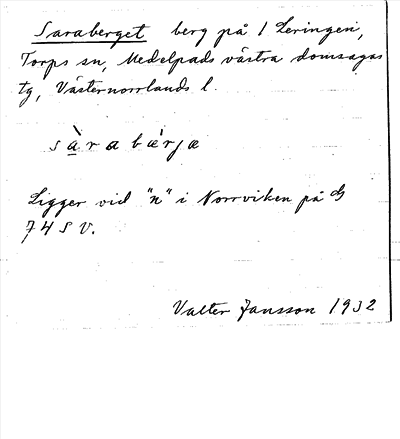 Saraberget berg på 1 Leringen,
Torps sn, Medelpads västra domsagas
tg, Västernorrlands l.
sàrabæ̀rjæ
Ligger vid "n" i Norrviken på
74 S V.
Valter Jansson 1932